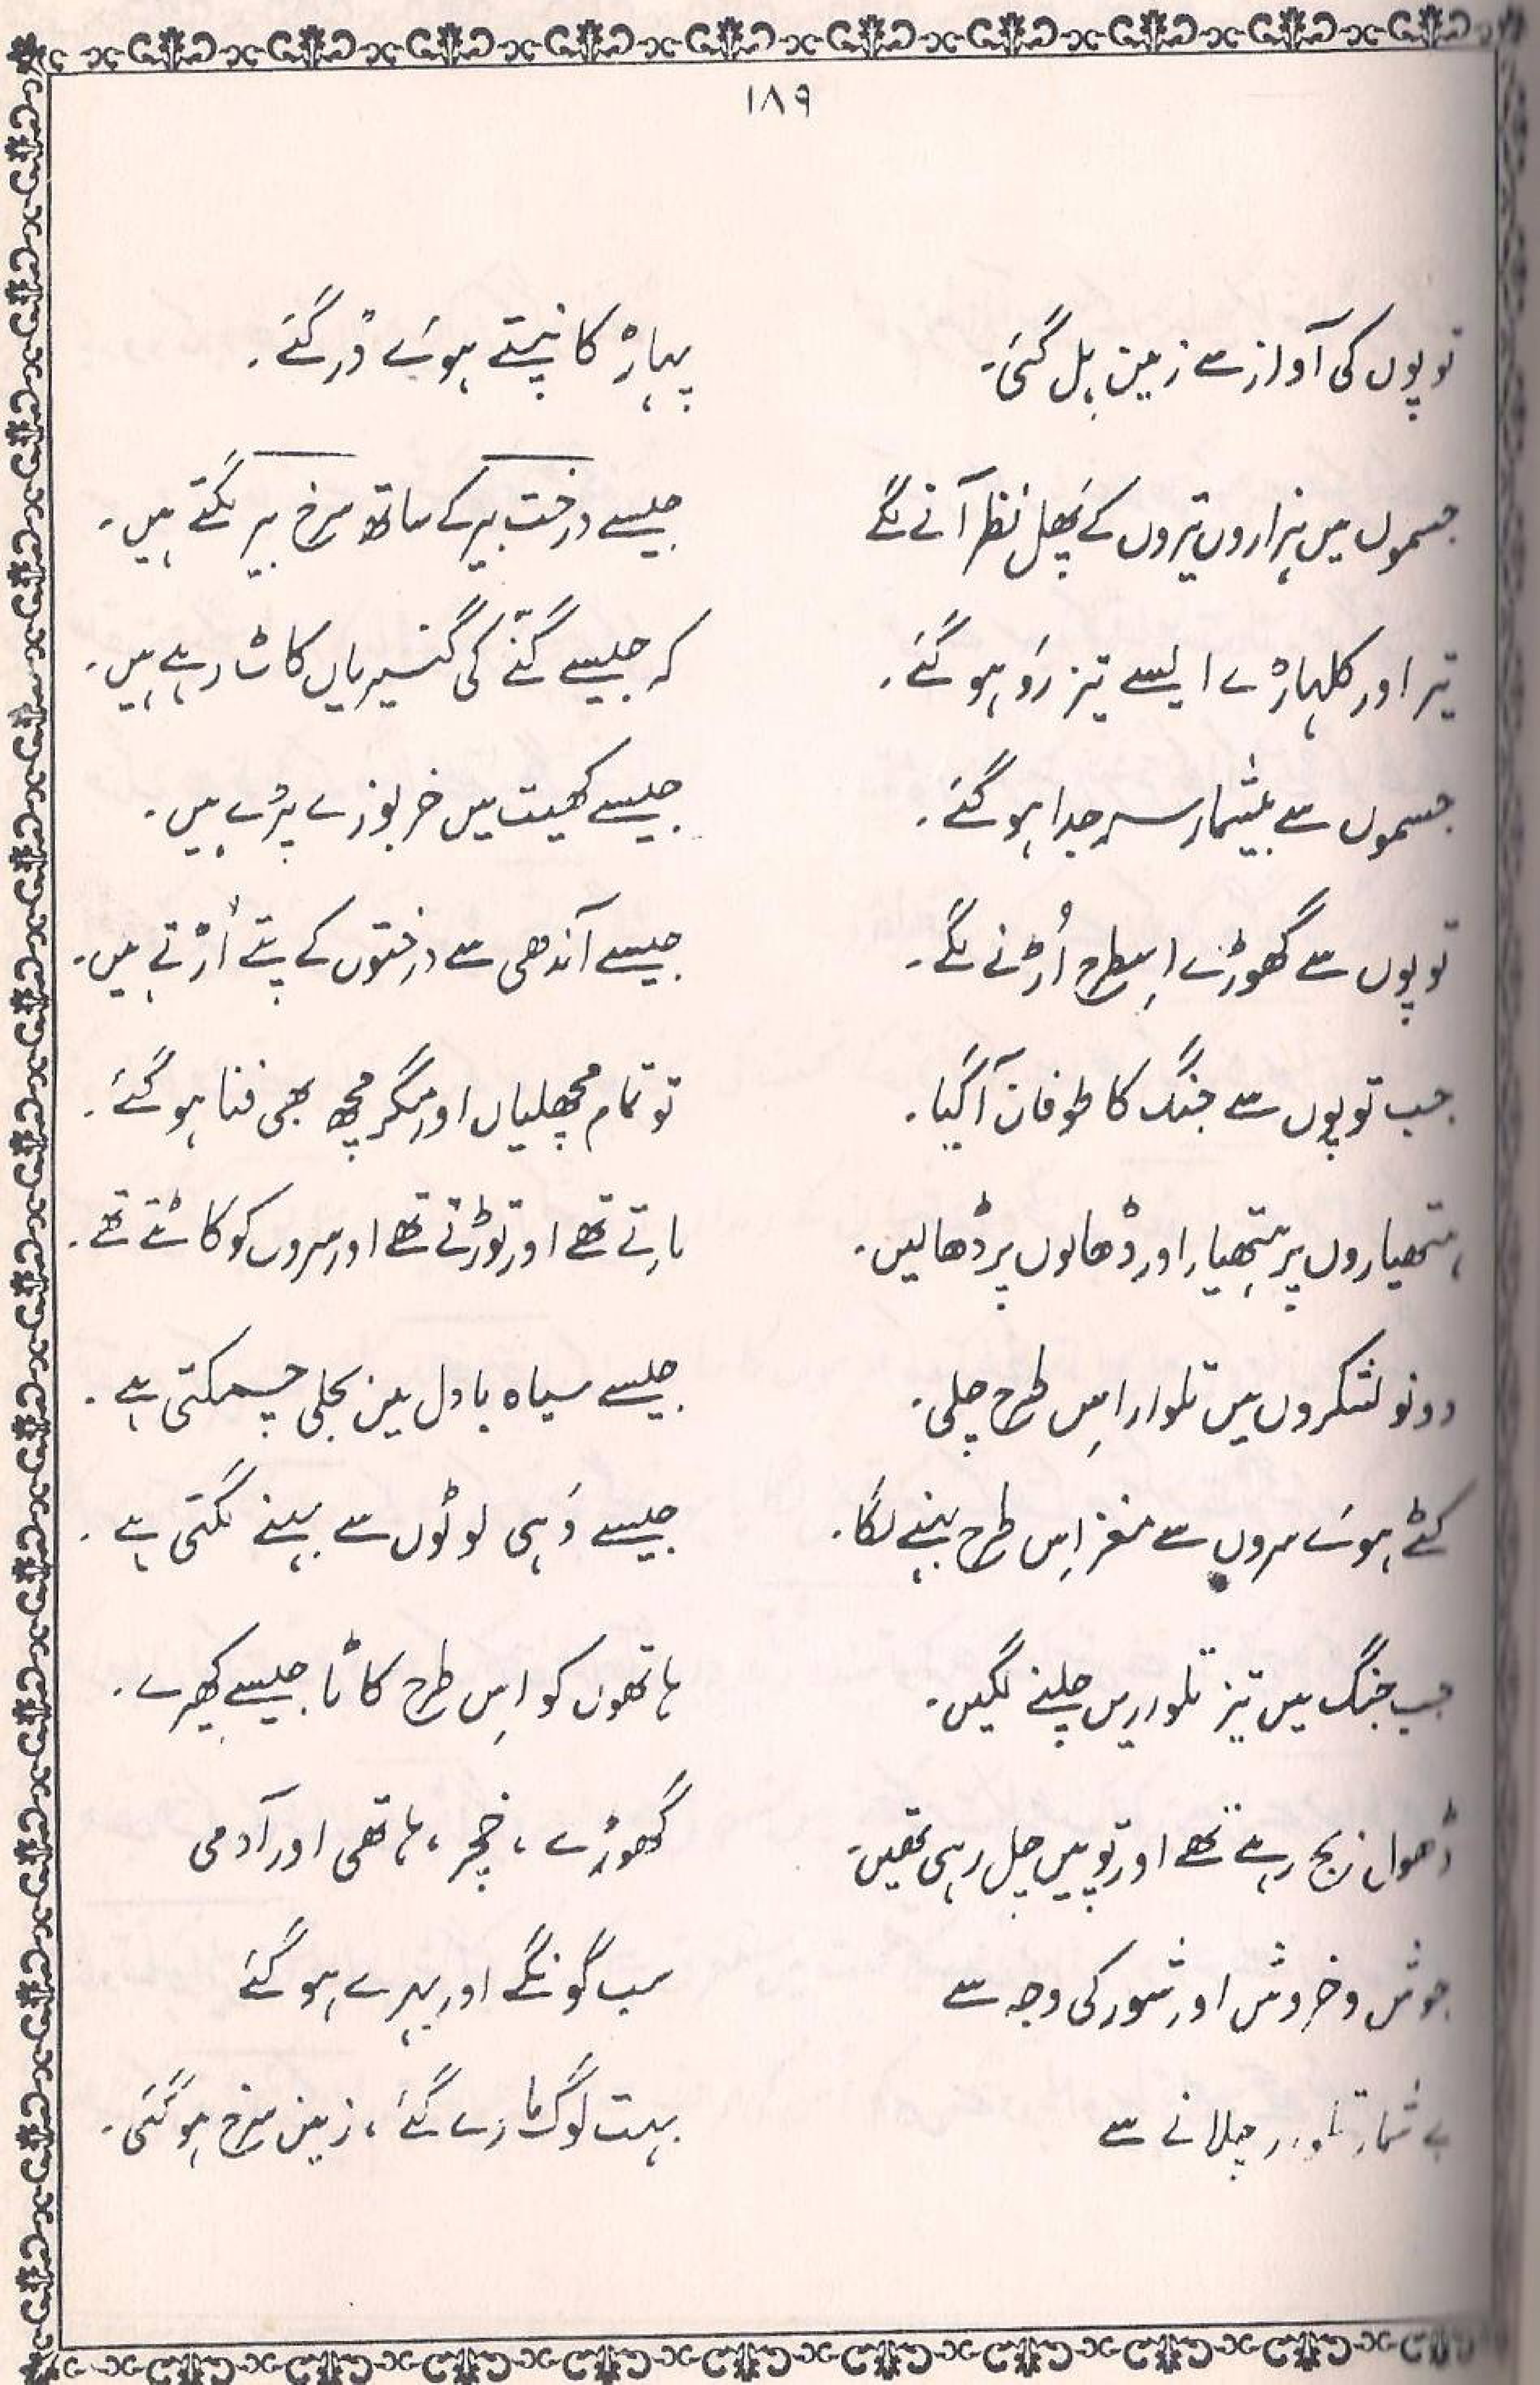 ۱۸۹
توپوں کی آواز سے زمین ہل گئی۔ پہاڑ کانپتے ہوئے ڈر گئے۔
جسموں میں ہزاروں تیروں کے پھل نظر آنے لگے جیسے درخت بیر کے ساتھ سرخ بیر لگتے ہیں۔
تیر اور کلہاڑے ایسے تیز رَو ہو گئے۔ کہ جیسے گنّے کی گنیریاں کاٹ رہے ہیں۔
جسموں سے بیشمار سر جدا ہو گئے۔ جیسے کھیت میں خربوزے پڑے ہیں۔
توپوں سے گھوڑے اِسطرح اُڑنے لگے۔ جیسے آندھی سے درختوں کے پتے اُڑتے ہیں۔
جب توپوں سے جنگ کا طوفان آ گیا۔ تو تمام مچھلیاں اور مگر مچھ بھی فنا ہو گئے۔
ہتھیاروں پر ہتھیار اور ڈھالوں پر ڈھالیں۔ مارتے تھے اور توڑتے تھے اور سروں کو کاٹتے تھے۔
دونو لشکروں میں تلوار اِس طرح چلی۔ جیسے سیاہ بادل میں بجلی چمکتی ہے۔
کٹے ہوئے سروں سے مغز اِس طرح بہنے لگا۔ جیسے دَہی لوٹوں سے بہنے لگتی ہے۔
جب جنگ میں تیز تلواریں چلنے لگیں۔ ہاتھوں کو اِس طرح کاٹا جیسے کھیرے۔
ڈھول بج رہے تھے اور توپیں چل رہی تھیں۔ گھوڑے، خچر، ہاتھی اور آدمی
جوش و خروش اور شور کی وجہ سے سب گونگے اور بہرے ہو گئے
بے شمار تلوار چلانے سے بہت لوگ مارے گئے، زمین سرخ ہو گئی۔